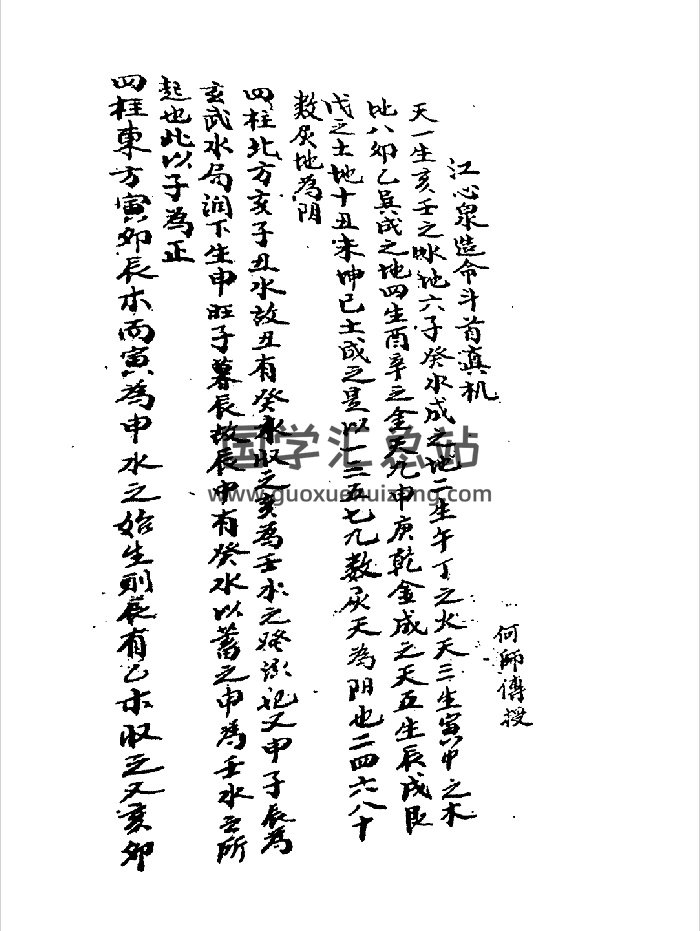 江心泉造命斗首真机
何師傳授
天一生亥壬之水地六子癸水成之地二生午丁之火天三生寅甲之木
地八卯乙巽成之地四生酉辛之金天九申庚乾金成之天五生辰戌艮
戊之土地十丑未坤己土成之是以一三五七九数属天為阳也二四六八十
数属地為阴
四柱北方亥子丑水故丑有癸水収之亥為壬水之発源也又申子辰為
玄武水局润下生申旺子墓辰故辰中有癸水以蓄之申為壬水之所
起也此以子為正
四柱東方寅卯辰木而寅為甲木之始生則辰有乙木収之又亥卯
国学汇总站
www.guoxuehuizong.com